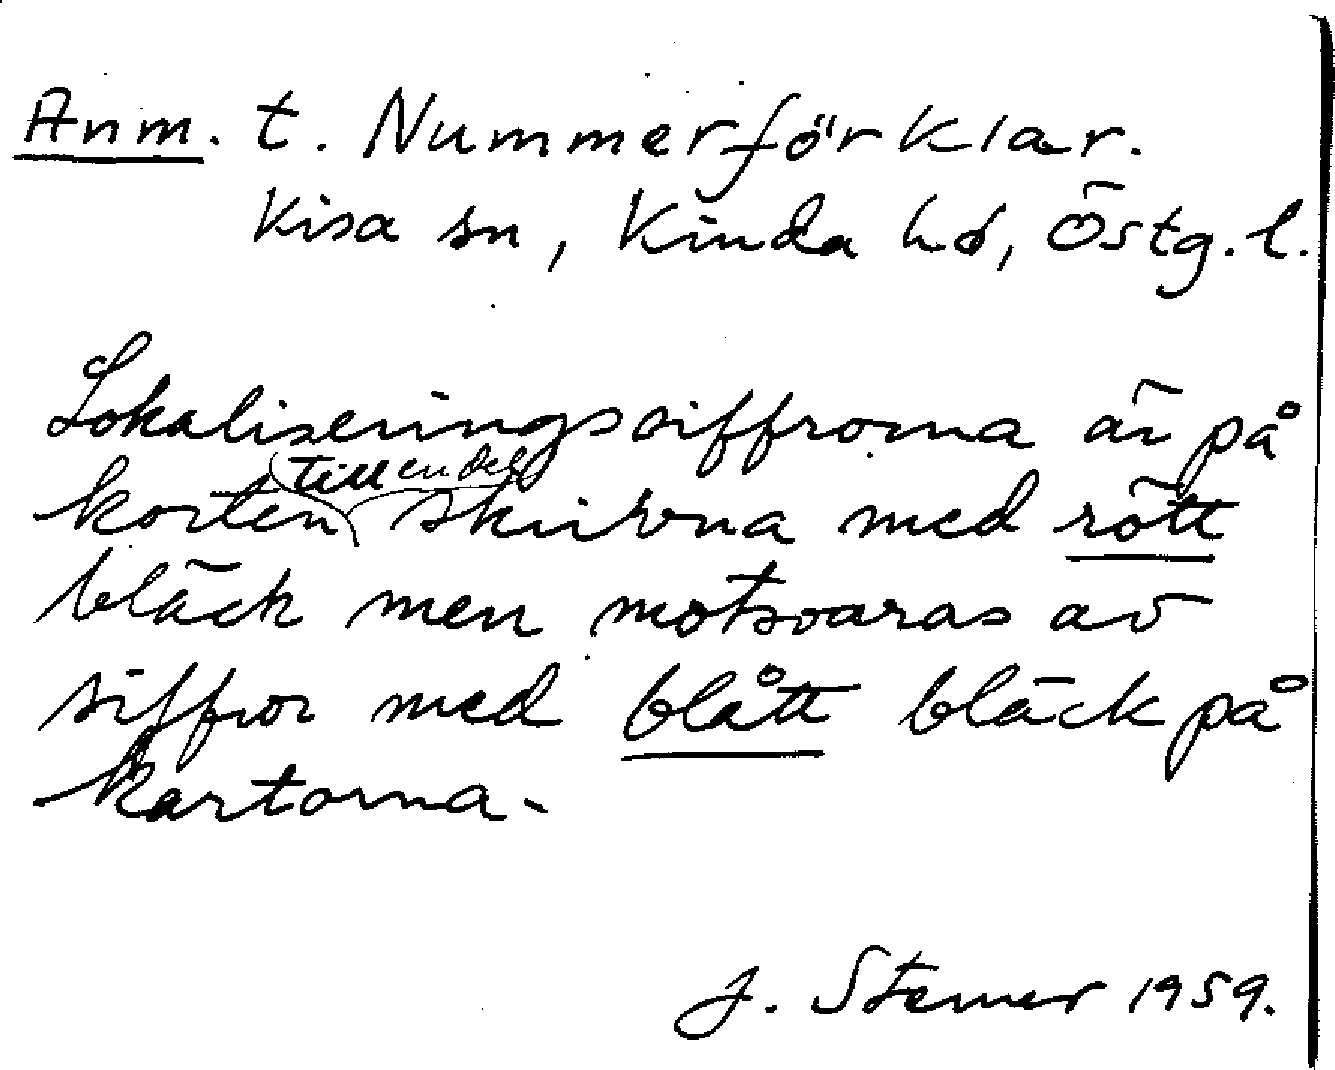 Anm. t. Nummerförklar.
Kisa sn, Kinda hd, Östg. l.
Lokaliseringssiffrorna är på
korten till en del skrivna med rött
bläck men motsvaras av
siffror med blått bläck på
kartorna.
J. 1959.